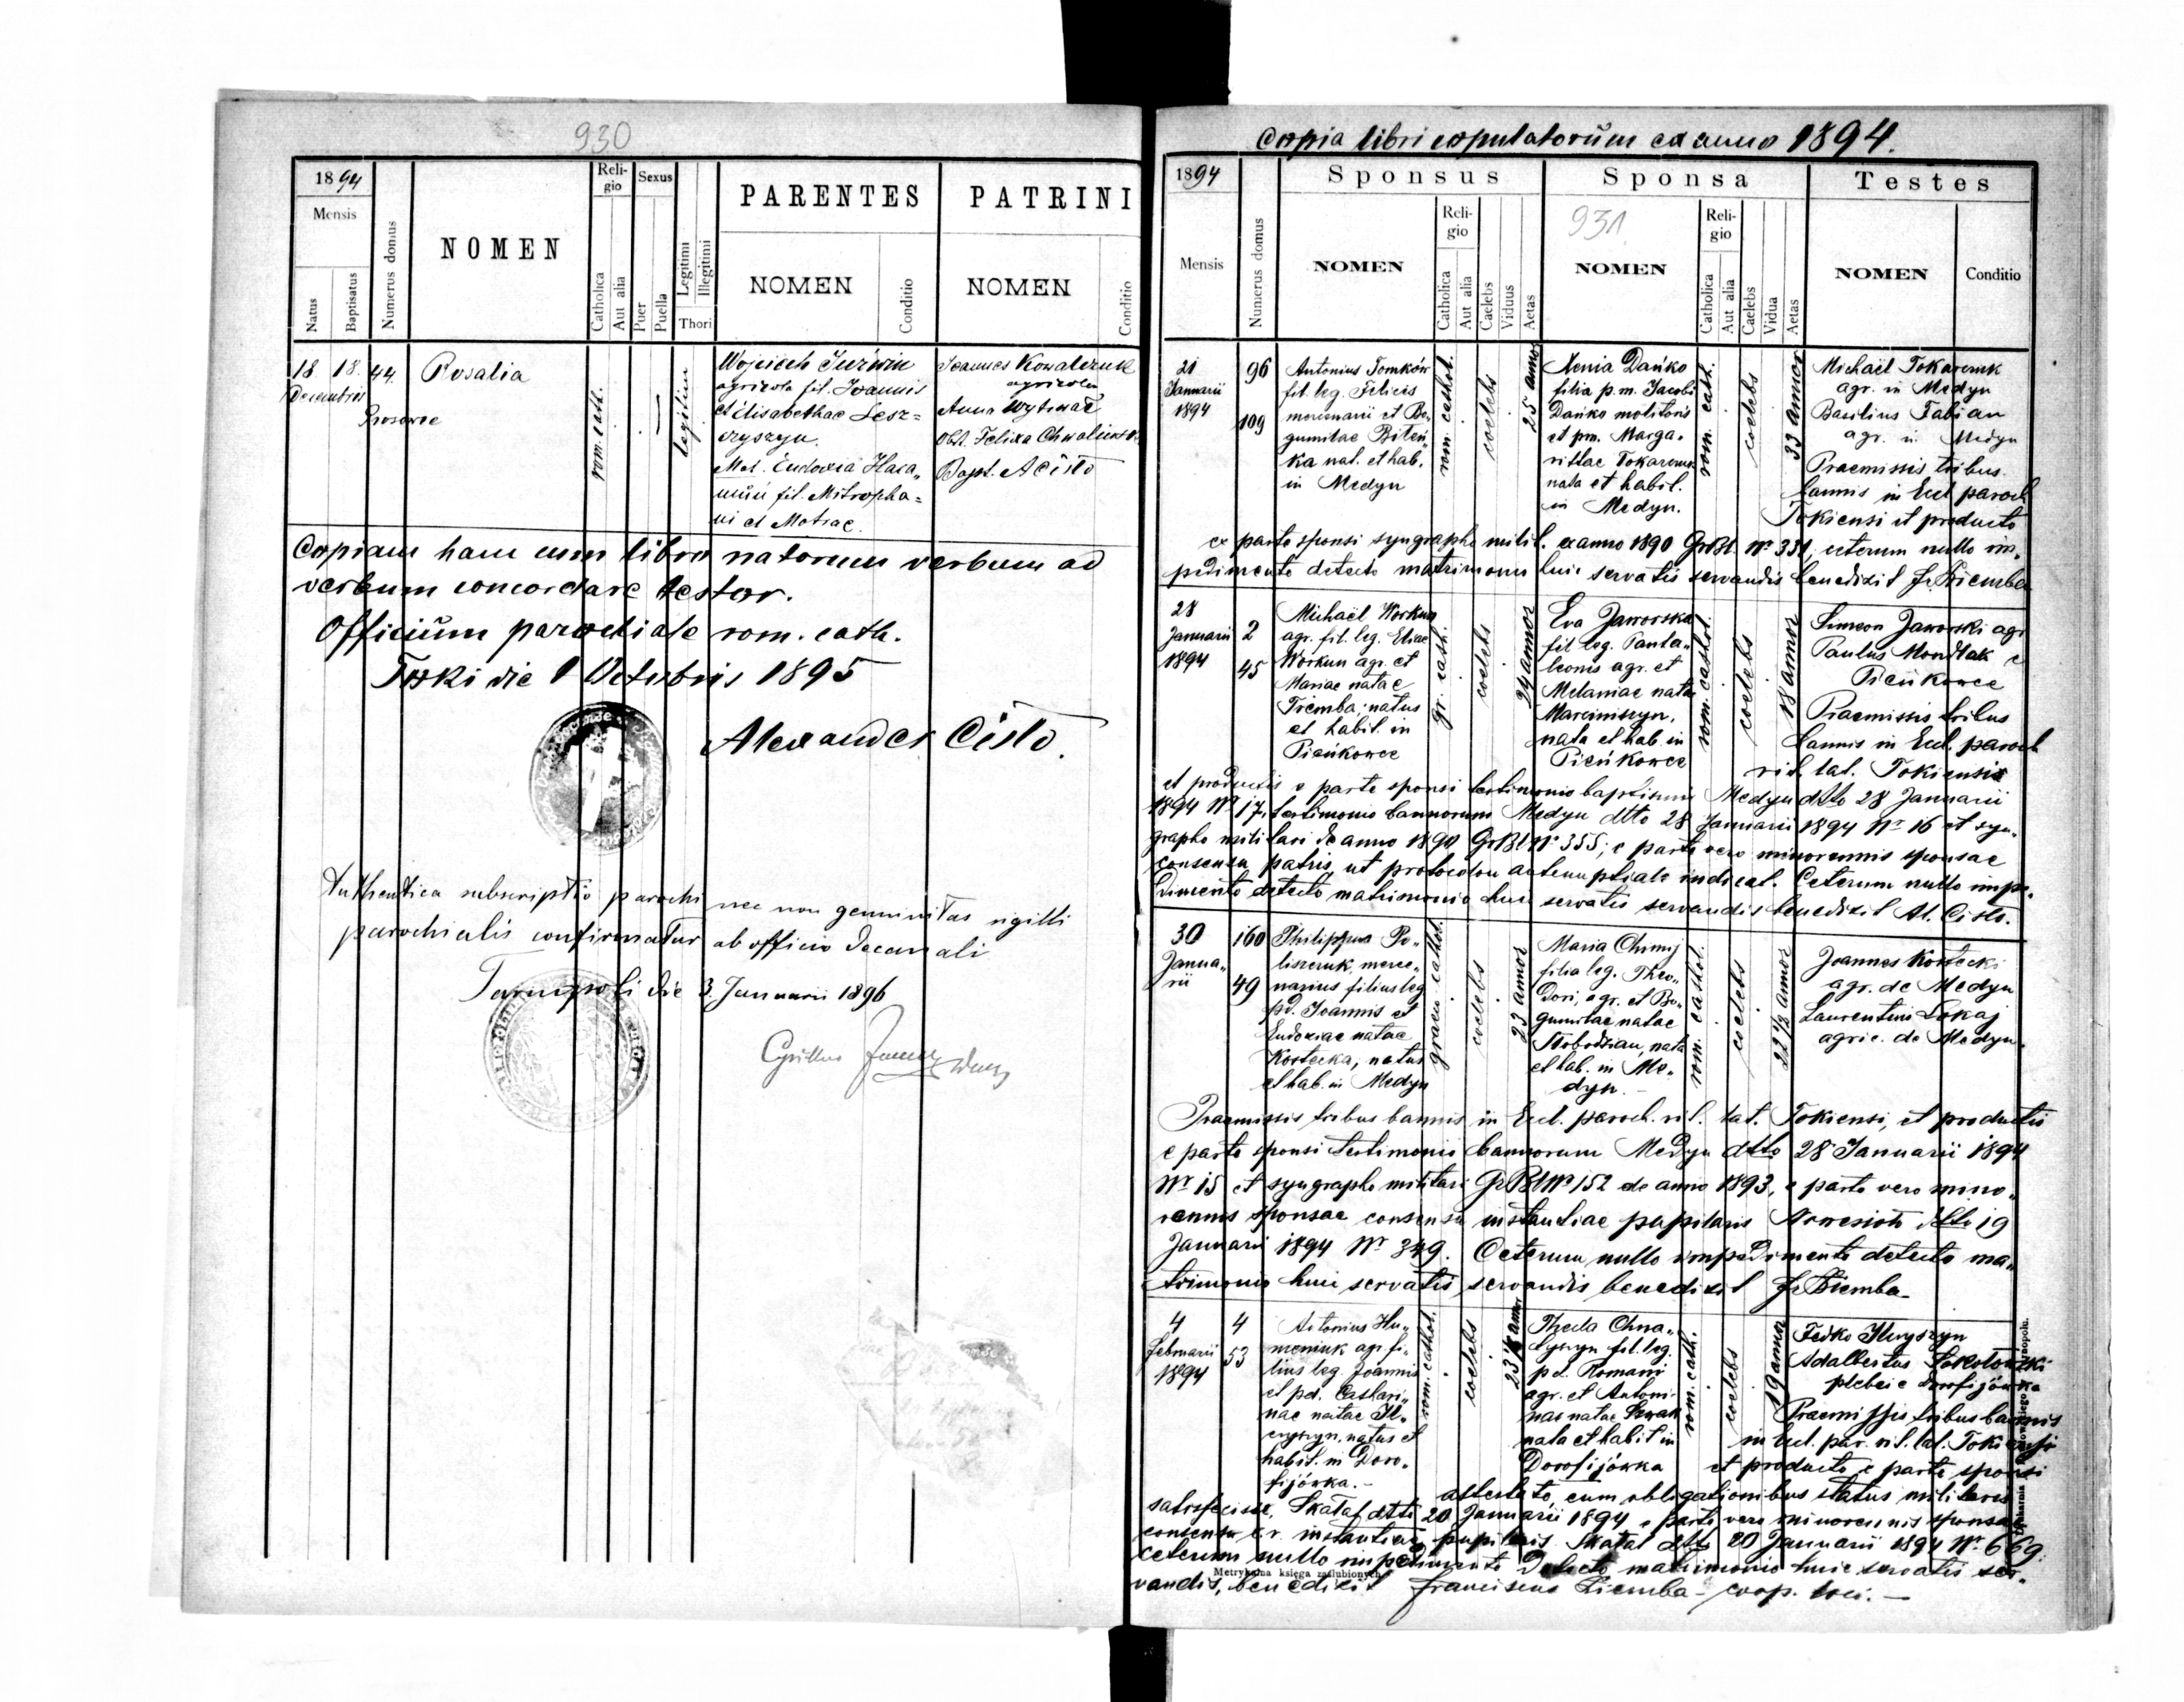 930
1894
Mensis
Natus
Baptisatus
Numerus domus
NOMEN
Religio
Catholica
Aut alia
Sexus
Puer
Puella
Legitimi
Illegitimi
Thori
PARENTES
NOMEN
Conditio
PATRINI
NOMEN
Conditio
18 18. 44. Rosalia
Decembris
rom. cath.
legitim
Wojciech
agricola fil. Joannis
et Elisabethae Lesz=
czyszyn.
Mat. Eudoxia Hara„
fil. Mitropha=
ni et Motrae.
Joannes Kowalczuk
agricola
Anna
Obst. Felixa
Bapt. A Cisło
Copiam hanc cum libro natorum verbum ad
verbum concordare testor.
Officium parochiale rom. cath.
Toki die 1 Octobris 1895
Alexander Cisło.
Authentica subscriptio parochi nec non genuinitas sigilli
parochialis confirmatur ab officio decanali
Tarnopoli die 3. Januarii 1896
Cyrillus
Copia libri copulatorum ex anno 1894.
1894
Mensis
Numerus domus
Sponsus
NOMEN
Religio
Catholica
Aut alia
Caelebs
Viduus
Aetas
Sponsa
931
NOMEN
Religio
Catholica
Aut alia
Caelebs
Vidua
Aetas
Testes
NOMEN
Conditio
21
Januarii
1894
96
109
Antonius Tomków
fil. leg. Felicis
mercenarii et Bo„
gumilae Biteń„
ka nat. et hab.
in Medyn
rom. cathol.
coelebs
25 annor
Xenia Dańko
filia p. m. Jacobi
Dańko molitoris
et pm. Marga„
rittae
nata et habit.
in Medyn.
rom. cath.
coelebs
33 annor
Michaël
agr. in Medyn
Basilius Fabian
agr. in Medyn
Praemissis tribus
bannis in Eccl. paroch
Tokiensi et producto
ex parte sponsi syngrapho milit. ex anno 1890 GrBl Nr 331, ceterum nullo im„
pedimento detecto matrimonio huic servatis servandis benedixit Fr. Ziemba
28
Januarii
1894
2
45
Michaël Workun
agr. fil. leg. Eliae
Workun agr. et
Mariae natae
Tremba; natus
et habit. in
Pieńkowce
gr. cath.
coelebs
24 annor
Eva Jaworska
fil leg. Panta„
leonis agr. et
Melaniae nata
Marciniszyn,
nata et hab. in
Pieńkowce
rom. cathol.
coelebs
18 annor
Simeon Jaworski agr
Paulus Mondlak e
Pieńkowce
Praemissis tribus
bannis in Eccl. paroch
rit. lat. Tokiensis
et productis e parte sponsi testimonio baptismi Medyn dtto 28 Januarii
1894 Nr 17, testimonio bannorum Medyn dtto 28 Januarii 1894 Nr 16 et syn„
grapho militari de anno 1890 GrBl Nr 355; e parte vero minorennis sponsae
consensu patris, ut protocolon antenuptiale indicat. Ceterum nullo impe„
dimento detecto matrimonio huic servatis servandis benedixit Al. Cisło.
30
Janua„
rii
160
49
Philippus Po„
liszczuk, merce„
narius filius leg
pd. Joannis et
Eudoxiae natae
Kostecka; natus
et hab. in Medyn
graeci cathol.
coelebs
23 annor
Maria Chmij
filia leg. Theo„
dori, agr. et Bo„
gumilae natae
nata
et hab. in Me„
dyn.
rom. cathol.
coelebs
22 1/2 annor
Joannes Kostecki
agr. de Medyn
Laurentius Lokaj
agric. de Medyn.
Praemissis tribus bannis in Eccl. paroch. rit. lat. Tokiensi, et productis
e parte sponsi testimonio bannorum Medyn dtto 28 Januarii 1894
Nr 15 et syngrapho militari GrBl Nr 152 de anno 1893, e parte vero mino„
rennis sponsae consensu instantiae pupilaris dtto 19
Januarii 1894 Nr 349. Ceterum nullo impedimento detecto ma„
trimonio huic servatis servandis benedixit Fr Ziemba
4
Februarii
1894
4
53
Antonius Hu„
meniuk agr. fi„
lius leg. Joannis
et pd. Cathari„
nae natae Il„
czyszyn, natus et
habit. in Doro„
fijówka.-
rom. cathol.
coelebs
Thecla
fil. leg.
pd. Romani
agr. et Antoni„
nae natae
nata et habit in
Dorofijówka
rom. cath.
coelebs
19 annor
Fedko
Adalbertus Sokołowski
plebei e Dorofijówka
Praemissis tribus bannis
in Eccl. par. rit. lat. Tokiensi
et producto e parte sponsi
attestato, eum obligationibus status militaris
satisfecisse, Skałat dtto 20 Januarii 1894 e parte vero minorennis sponsae
consensu c.r. instantiae pupilaris Skałat dtto 20 Januarii 1894 Nr. 669.
Ceterum nullo impedimento detecto matrimonio huic servatis ser„
vandis, benedixit Franciscus Ziemba - coop. loci. —
Metrykalna księga zaślubionych